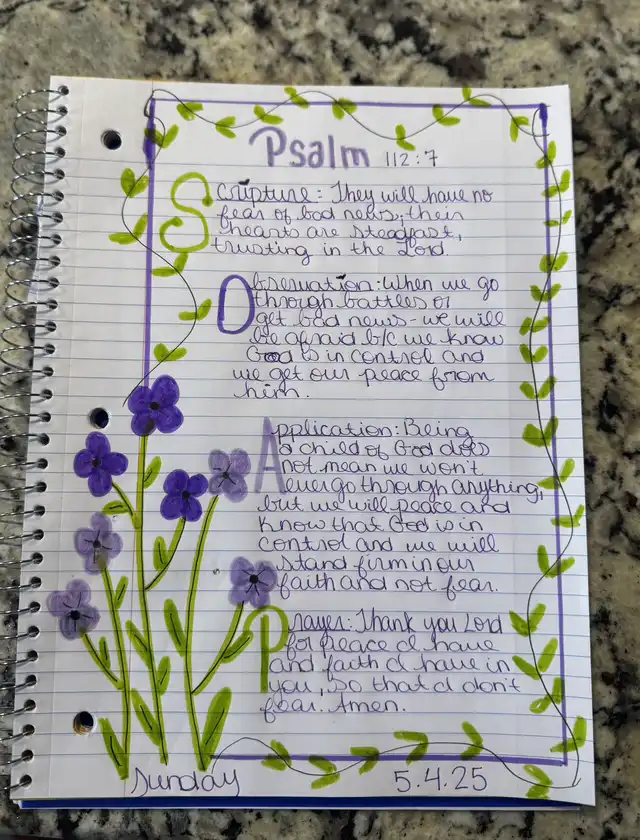 Psalm 112:7
Scripture: They will have no
fear of bad news; their
hearts are steadfast,
trusting in the Lord.
Observation: When we go
through battles or
get bad news - we will
be afraid b/c we know
God is in control and
we get our peace from
him.
Application: Being
a child of God does
not mean we won't
ever go through anything,
but we will peace and
know that God is in
control and we will
stand firm in our
faith and not fear.
Prayer: Thank you Lord
for peace I have
and faith I have in
you, so that I don't
fear. Amen.
Sunday 5.4.25